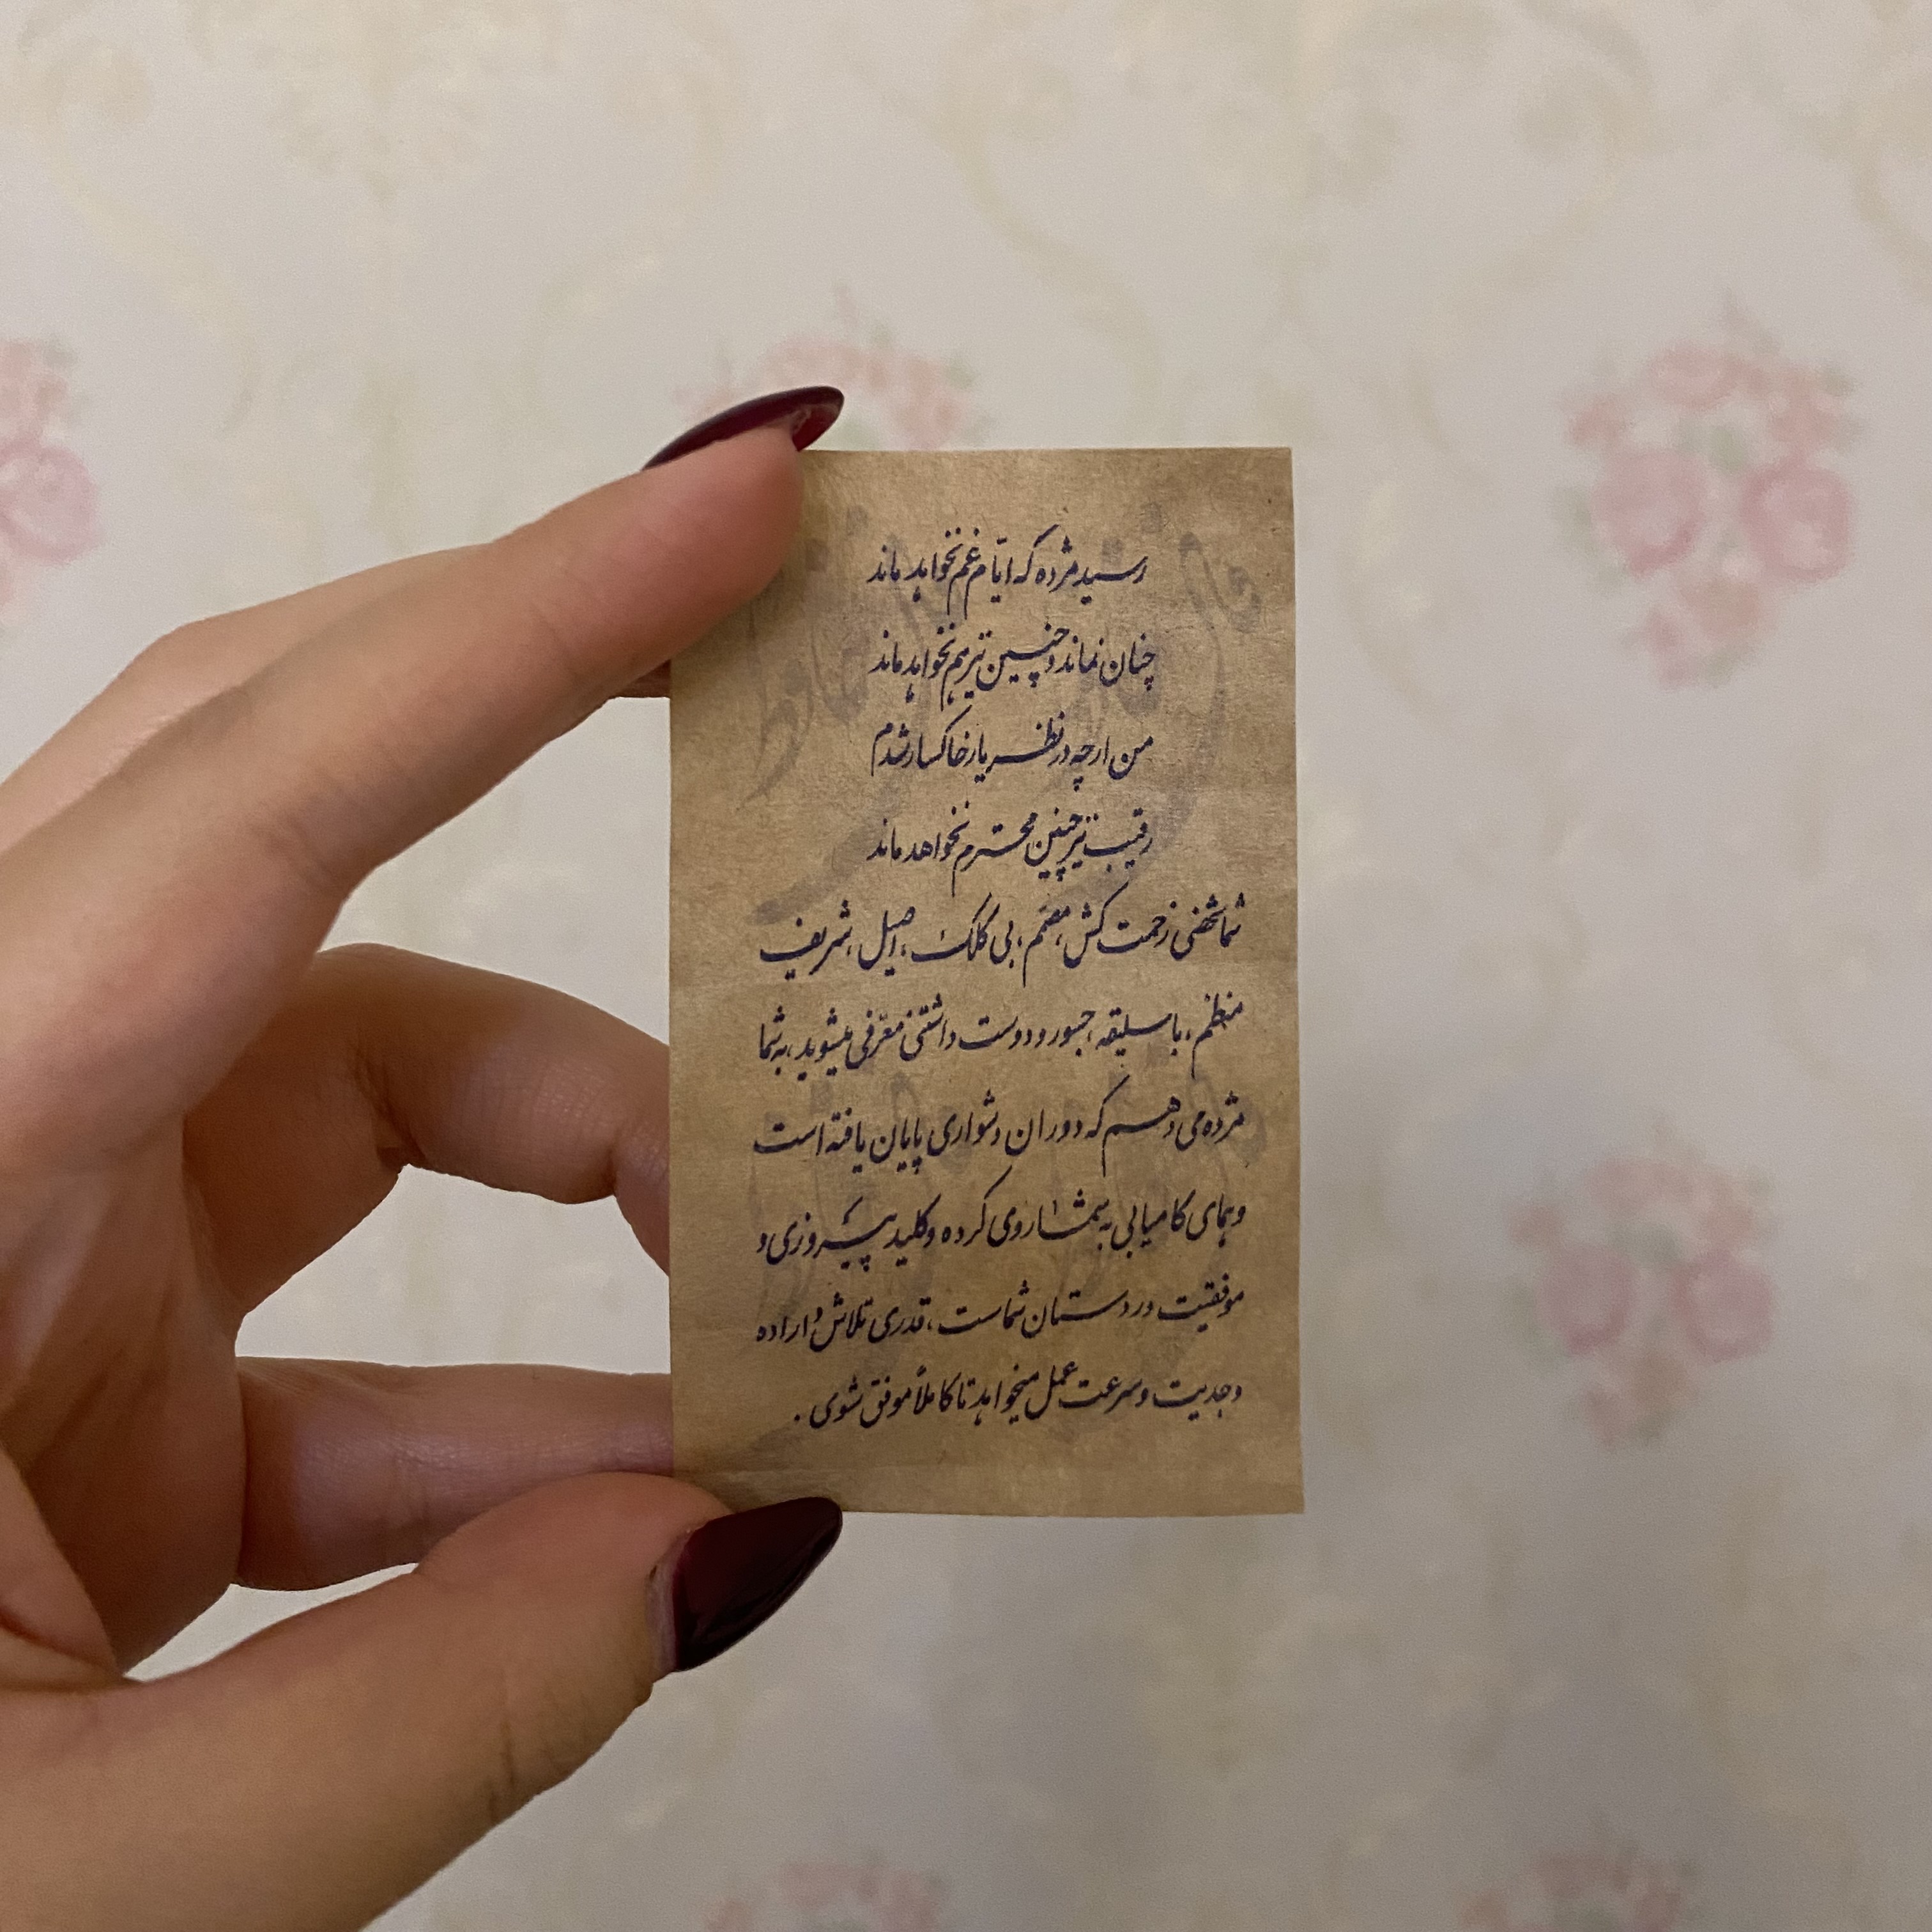 رسید مژده که ایّام غم نخواهد ماند
چنان نماند و چنین نیز هم نخواهد ماند
من ارچه در نظر یار خاکسار شدم
رقیب نیز چنین محترم نخواهد ماند
شما شخصی زحمت کش، مصمّم، بی کلک، اصیل، شریف
منظم، با سلیقه، جسور و دوست داشتنی معرّفی میشوید، به شما
مژده می دهم که دوران دشواری پایان یافته است
و همای کامیابی به شما روی کرده و کلید پیروزی و
موفقیت در دستان شماست، قدری تلاش و اراده
و جدیت و سرعت عمل میخواهد تا کاملاً موفق شوی.